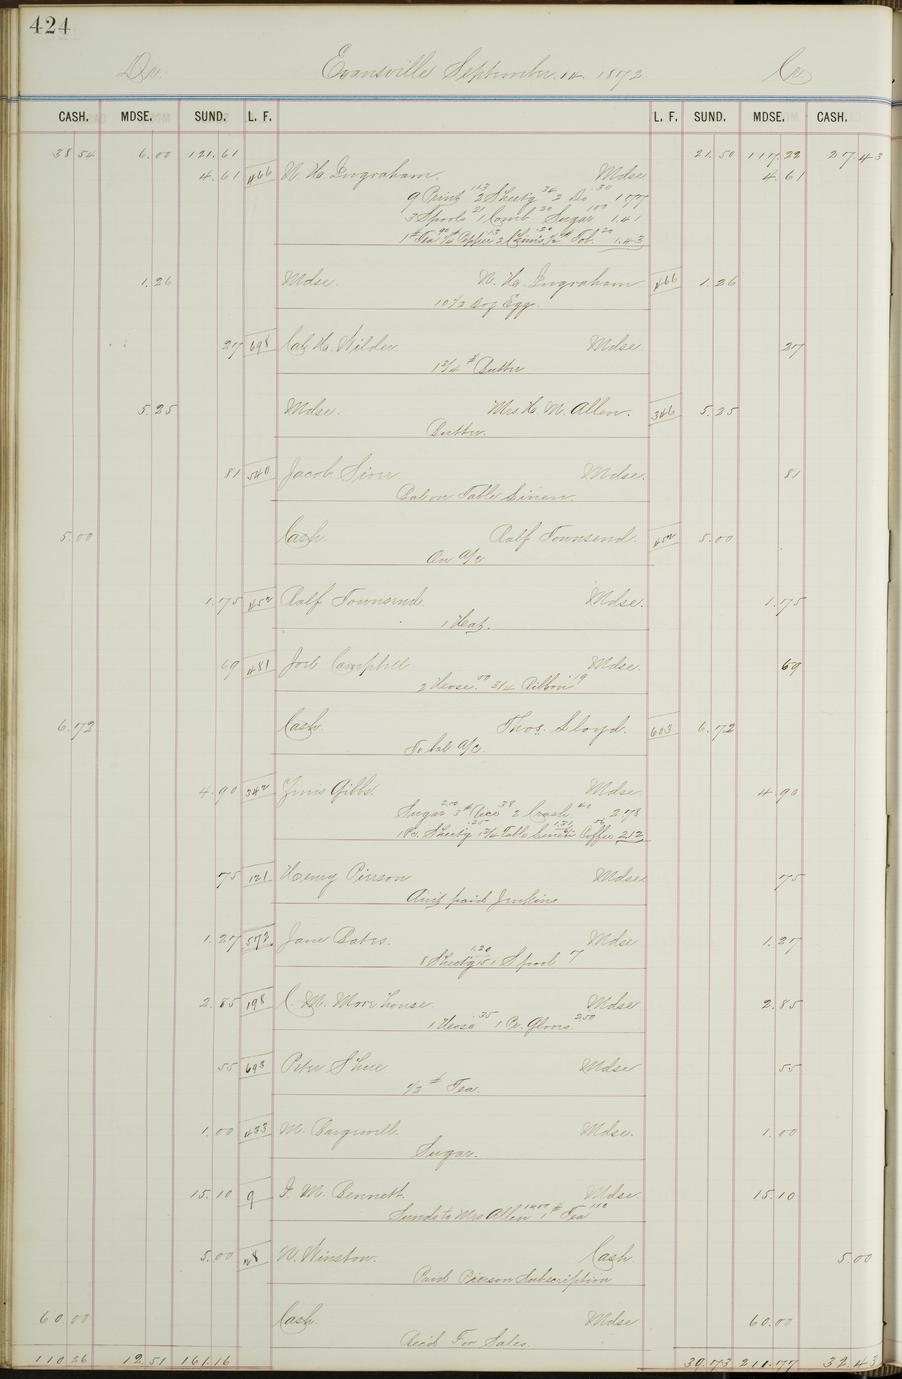 424
Dr. Evansville September. 14. 1872. Cr
CASH. MDSE. SUND. L. F. L. F. SUND. MDSE. CASH.
38 54 6.00 121.61 21.50 117.22 27.43
4.61 466 N. H. Ingraham. Mdse 4.61
9 Print 113 2 Sheetg 34 2 Do 30 1.77
3 Spools 21 1 Comb 20 Sugar 100 1.41
1# Tea 90 Tob. 20 1.43
1.26 Mdse. N. H. Ingraham 466 1.26
10 1/2 Doz Eggs.
27 698 H. Wilder Mdse 27
1 3/4 # Butter
5.25 Mdse. Mrs. H. M. Allen. 346 5.25
Butter.
81 540 Jacob Mdse. 81
Bal on Table Linen.
5.00 Cash. Ralf Townsend. 452 5.00
On a/c
1.75 452 Ralf Townsend. Mdse. 1.75
1 Hat.
69 481 Joel Campbell Mdse. 69
2 Hose. 50 3/4 Ribbon 19
6.72 Cash. Thos. Lloyd. 603 6.72
To bal a/c.
4.90 342 Gibbs. Mdse. 4.90
Sugar 2.00 3# Rice 38 2 Crash 40 2.78
Sheetg .25 1 3/4 Table Linen 1.31 Coffee 56 2.12
75 121 Henry Pierson Mdse 75
Amt paid Jenkins
1.27 572. Jane Bates. Mdse 1.27
8 Sheetg 15 1.20 1 Spool 7
2.85 198 C. M. Morehouse. Mdse 2.85
1 Hose .35 1 Pr. Gloves 2.50
55 693 Peter Mdse 55
1/2 # Tea.
1.00 433 M. Mdse. 1.00
Sugar.
15.10 9 I. M. Bennett. Mdse 15.10
Sunds to Mrs Allen 1400 1# Tea 110
5.00 28 W. Winston. Cash. 5.00
Paid Pierson Subscription
60.00 Cash. Mdse 60.00
Rec'd For Sales.
110.26 12.51 161.16 39.73 211.77 32.43